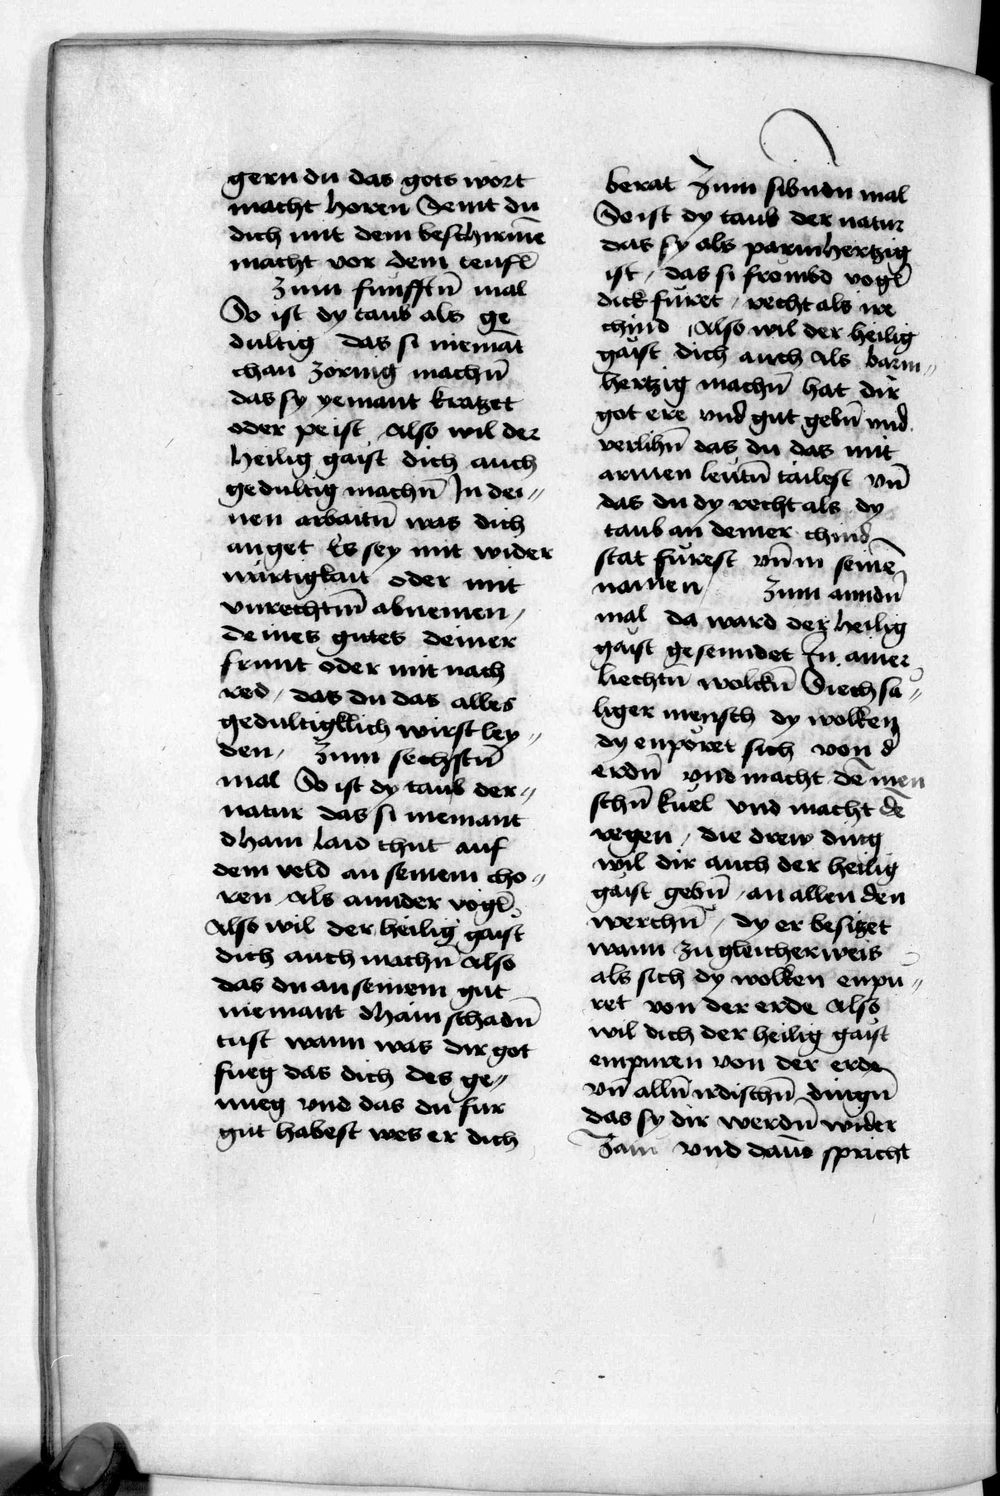 gern du das gots wort
macht horen Semt du
dich mit dem beschirmē
macht vor dem teufl̄
Zum funfftn̄ mal
So ist dy taub als ge
dultig das si niemāt
chan zornig machn̄
das sy yemant kratzet
oder peist Also wil der
heilig gaist dich auch
gedultig machn̄ In dei〃
nen arbaitn̄ was dich
anget Es sey mit wider
wurtigkait oder mit
vnrechtm̄ abnemen /
deines gutes deiner
frunt oder mit nach
red / das du das alles
gedultigklich wirst ley〃
den / Zum sechstn̄
mal So ist dy taub der〃
natur das si niemant
dhain laid thut auf
dem veld an seinem cho〃
ren Als annder vogl̄
Also wil der heilig gaist
dich auch machn̄ Also
das du an seinem gut
niemant dhain schadn̄
tust wann was dir got
fueg das dich des ge〃
nueg vnd das du fur
gut habest wes er dich
berat Zum sibndn mal
So ist dy taub der natur
das sy als parmhertzig
ist / das si frombd vogl̄
dick furet / recht als ire
chind / Also wil der heilig
gaist dich auch als barm〃
hertzig machn̄ hat dir
got ere vnd gut gebn̄ vnd
verlihn̄ das du das mit
armen leutn̄ tailest vn̄
das du dy recht als dy
taub an deiner chind
stat furest vn̄ in seinē
namen / Zum anndn̄
mal da ward der heilig
gaist gesenndet In ainer
liechtn̄ wolckn̄ Siech sa〃
liger mensch dy wolken
dy enporet sich von d̄
erdn̄ vnd macht dē men
schn̄ kuel vnd macht dē
regen / die drew ding
wil dir auch der heilig
gaist gebn̄ / an allen den
werchn̄ / dy er besitzet
wann zu gleicher weis
als sich dy wolken enpu〃
ret von der erde Also
wil dich der heilig gaist
empuren von der erde
vn̄ alln̄ irdischn̄ dingn̄
das sy dir werdn̄ wider
Zam vnd dauō spricht